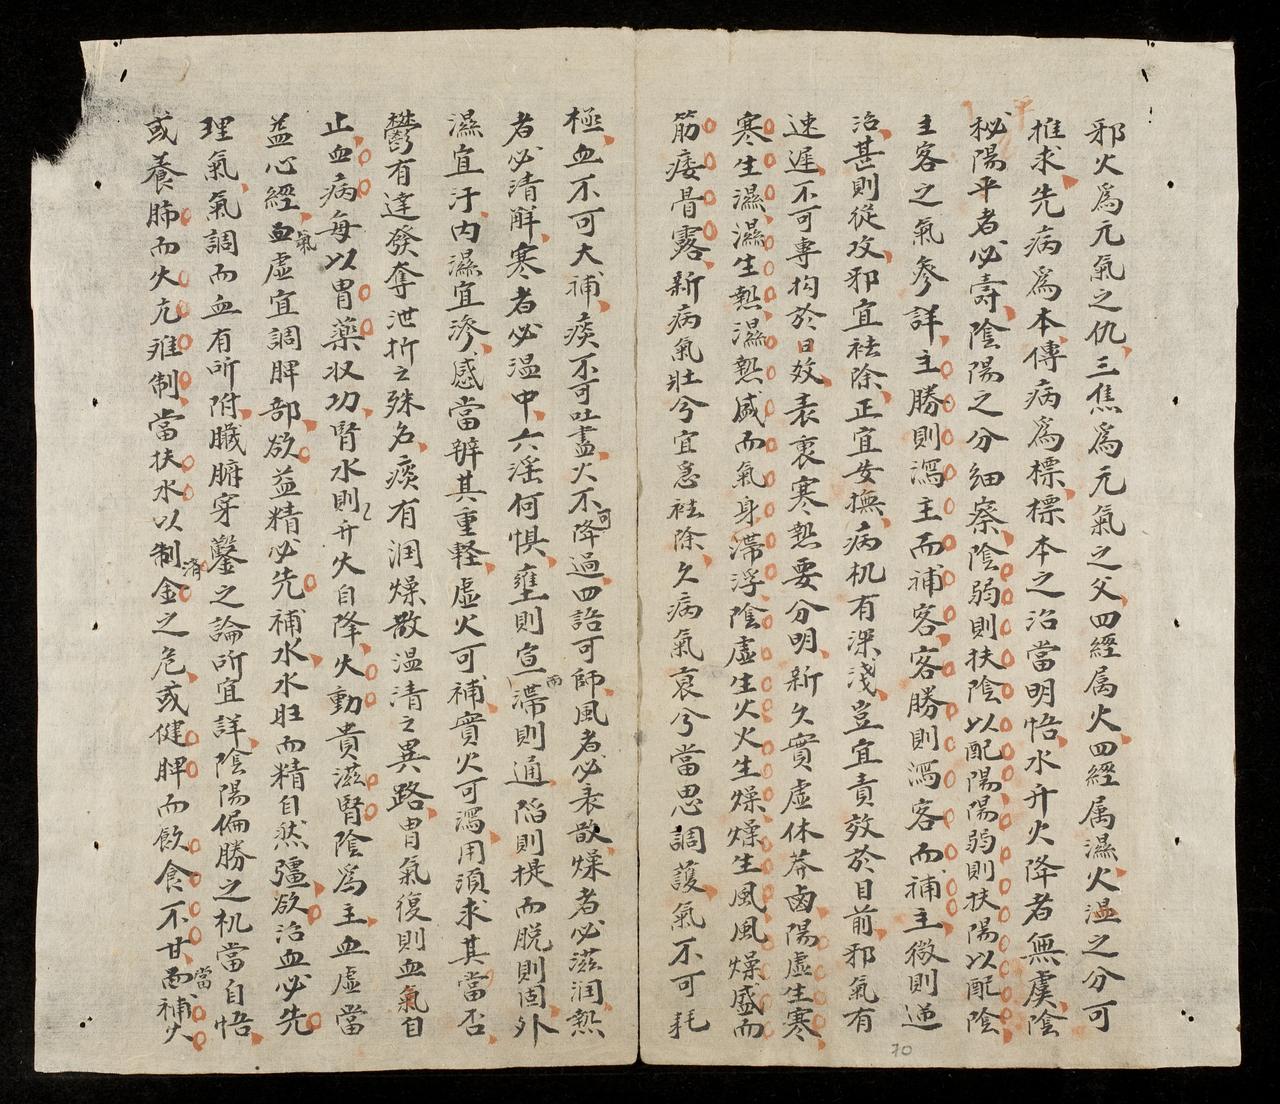 邪火為元氣之仇三焦為元氣之父四經属火四經属濕火温之分可
推求先病為本傳病為標標本之治當明悟水升火降者無虞陰
平
秘陽平者必壽陰陽之分細察陰弱則扶陰以配陽陽弱則扶陽以配陰
主客之氣參詳主勝則瀉主而補客客勝則瀉客而補主微則逆
治甚則從攻邪宜祛除正宜安撫病机有深淺豈宜責效於目前邪氣有
速遲不可專拘於日效表裏寒熱要分明新久實虛休莽鹵陽虛生寒
寒生濕濕生熱濕熱盛而氣身滯浮陰虛生火火生燥燥生風風燥盛而
筋痿骨露新病氣壯兮宜急祛除久病氣衰兮當思調護氣不可耗
70
極血不可大補痰不可吐盡火不可降過四詁可師風者必表散燥者必滋润熱
者必清解寒者必温中六淫何惧壅則宣滯則通陷則提而脱則固外
雨
濕宜汗内濕宜滲感當辨其重軽虛火可補實火可瀉用須求其當否
鬱有達發奪泄折之殊名痰有润燥散温清之異路胃氣復則血氣自
止血病每以胃藥収功腎水則升火自降火動貴滋腎陰為主血虛當
益心經血氣虛宜調脾部欲益精必先補水水旺而精自然彊欲治血必先
理氣氣調而血有所附臓腑穿鑿之論所宜詳陰陽偏勝之机當自悟
或養肺而火亢难制當扶水以制金之危或健脾而飲食不甘當補火
濟